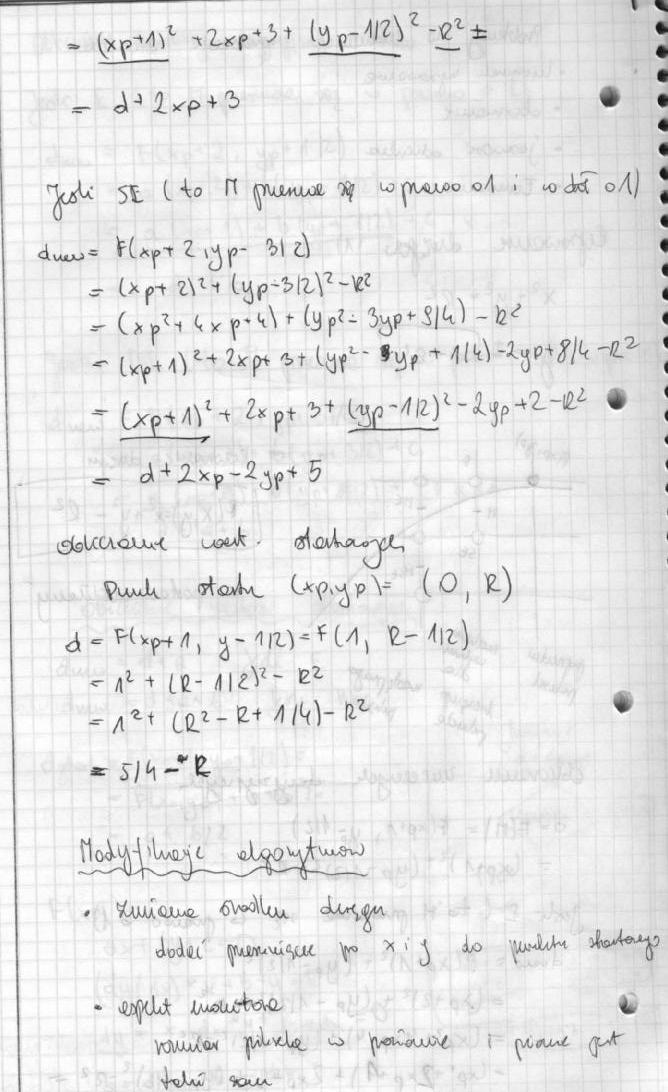 = (xp+1)² + 2xp+3 + (yp-1/2)² - R² ±
= d+2xp+3
Jeśli SE (to M przesuwa się w prawo o1 i w dół o1)
dnew = F(xp+2, yp- 3/2)
= (xp+2)² + (yp-3/2)² - R²
= (xp² + 4xp+4) + (yp² - 3yp + 9/4) - R²
= (xp+1)² + 2xp+3 + (yp² - yp + 1/4) - 2yp + 8/4 - R²
= (xp+1)² + 2xp+3 + (yp-1/2)² - 2yp+2 - R²
= d+2xp-2yp+5
wart. startowych
Punkt startu (xp,yp) = (0, R)
d = F(xp+1, y-1/2) = F(1, R-1/2)
= 1² + (R-1/2)² - R²
= 1² + (R² - R + 1/4) - R²
= 5/4 - R
Modyfikacje algorytmów
• zmiana środka okręgu
dodać przesunięcie po x i y do punktu startowego
• aspekt monitora
rozmiar piksela w poziomie i pionie jest
taki sam